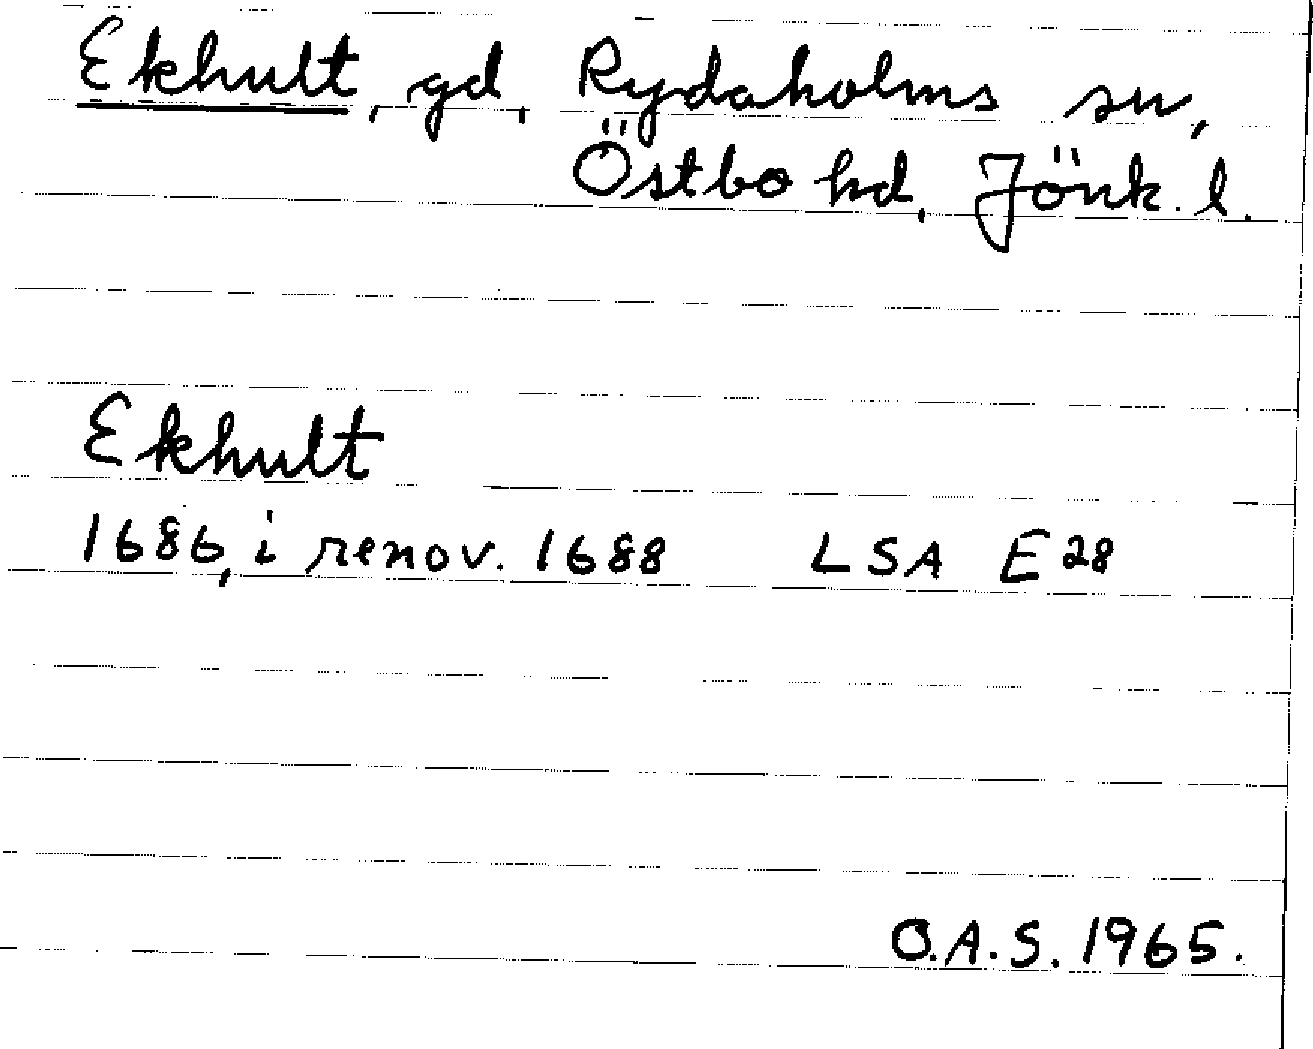 Ekhult, gd, Rydaholms sn,
Östbo hd, Jönk. l.
Ekhult
1686, i renov. 1688 LSA E28
O.A.S. 1965.